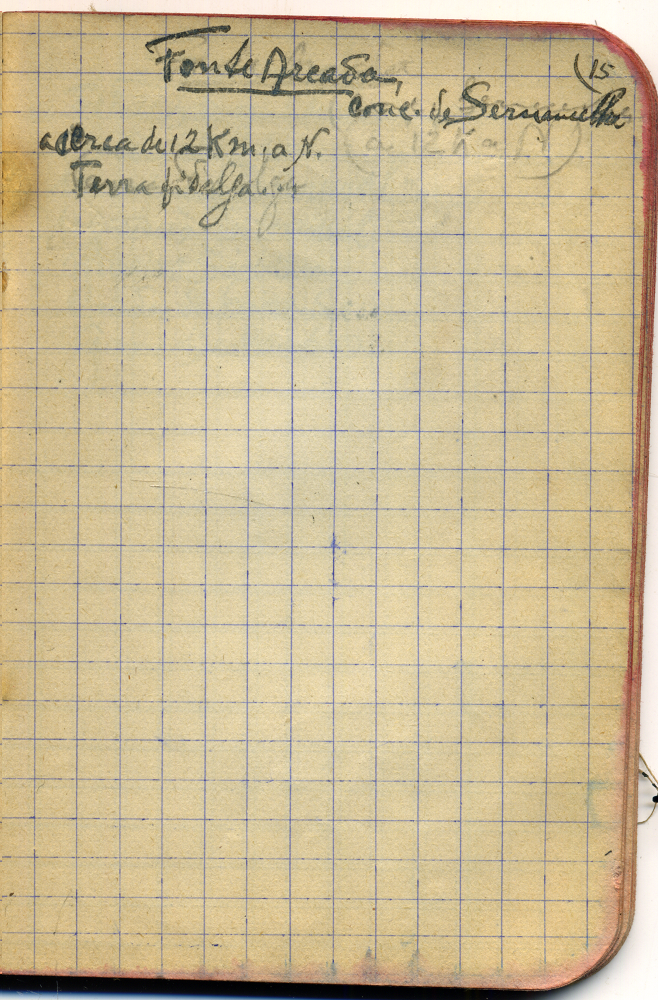 (15
Fonte Arcada,
conc. de Sernancelhe
a cerca de 12 Km, a N.
Terra fidalga
a 12 K a N